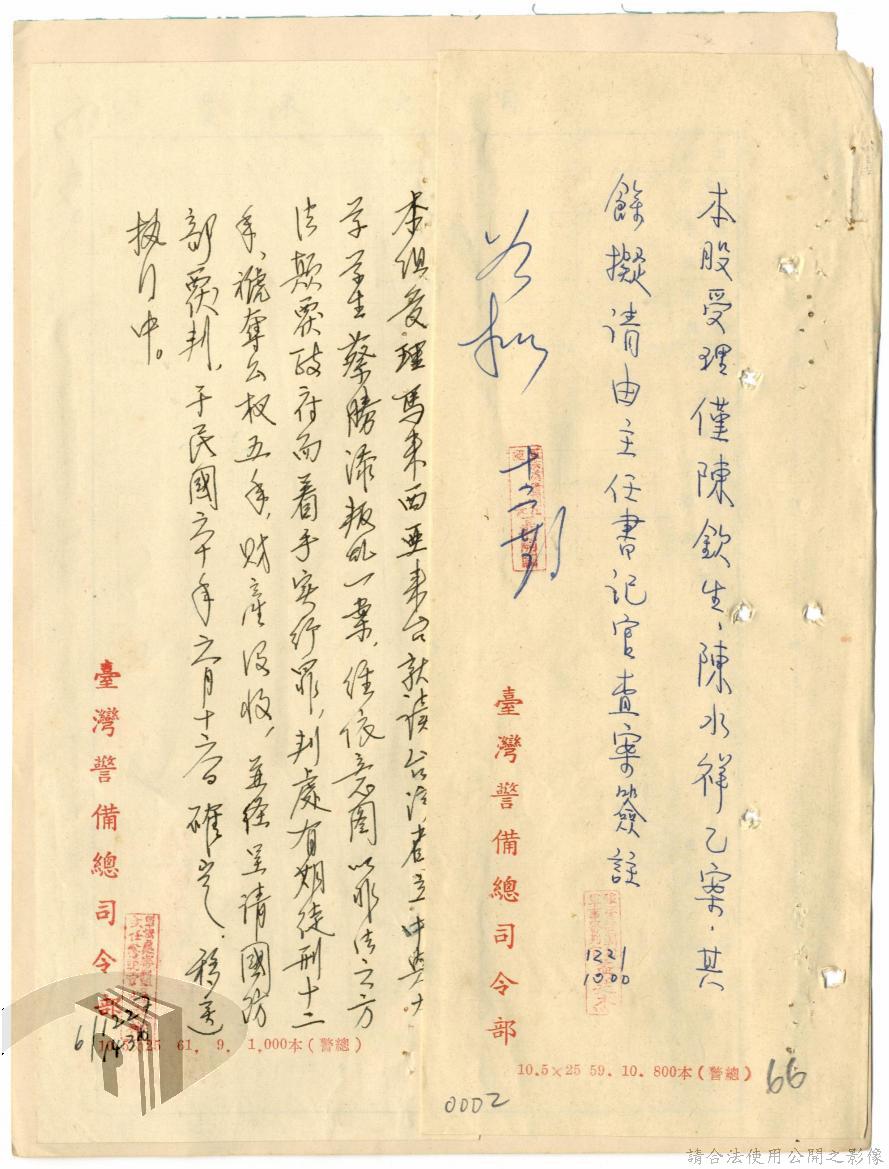 本股受理僅陳欽生、陳水祥乙案,其
餘擬請由主任書記官查案簽註
1221
1000
如擬
臺灣警備總司令部
10.5×25 59. 10. 800本(警總)
66
0002
本組受理馬來西亞來台就讀台灣省立中興大
学学生蔡勝添叛乱一案,經依意圖以非法之方
法顛覆政府而着手实行罪,判處有期徒刑十二
年、褫奪公权五年,財產没收,並経呈請國防
部覆判,于民國六十年六月十六日確定。移送
执行中。
臺灣警備總司令部
61
1227
1430
10.5×25 61. 9. 1,000本(警總)
請合法使用公開之影像